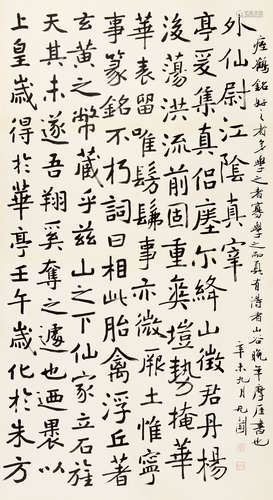 上皇歲得於華亭壬午歲化於朱方
天其未遂吾翔奚奪之遽也迺裹以
玄黃之幣藏乎茲山之下仙家立石旌
事篆銘不朽詞曰相此胎禽浮丘著
華表留唯髣髴事亦微厥土惟寧
後蕩洪流前固重爽塏勢掩華
亭爰集真侶瘞尔絳山徵君丹楊
外仙尉江陰真宰
瘞鶴銘好之者多學之者寡學之而真有得者山谷晚年摩崖書也
辛未九月